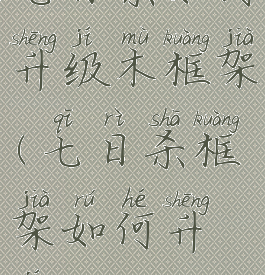 shēng jí mù kuàng jià
升级木框架
qī rì shā kuàng
（七日杀框
jià rú hé shēng
架如何升